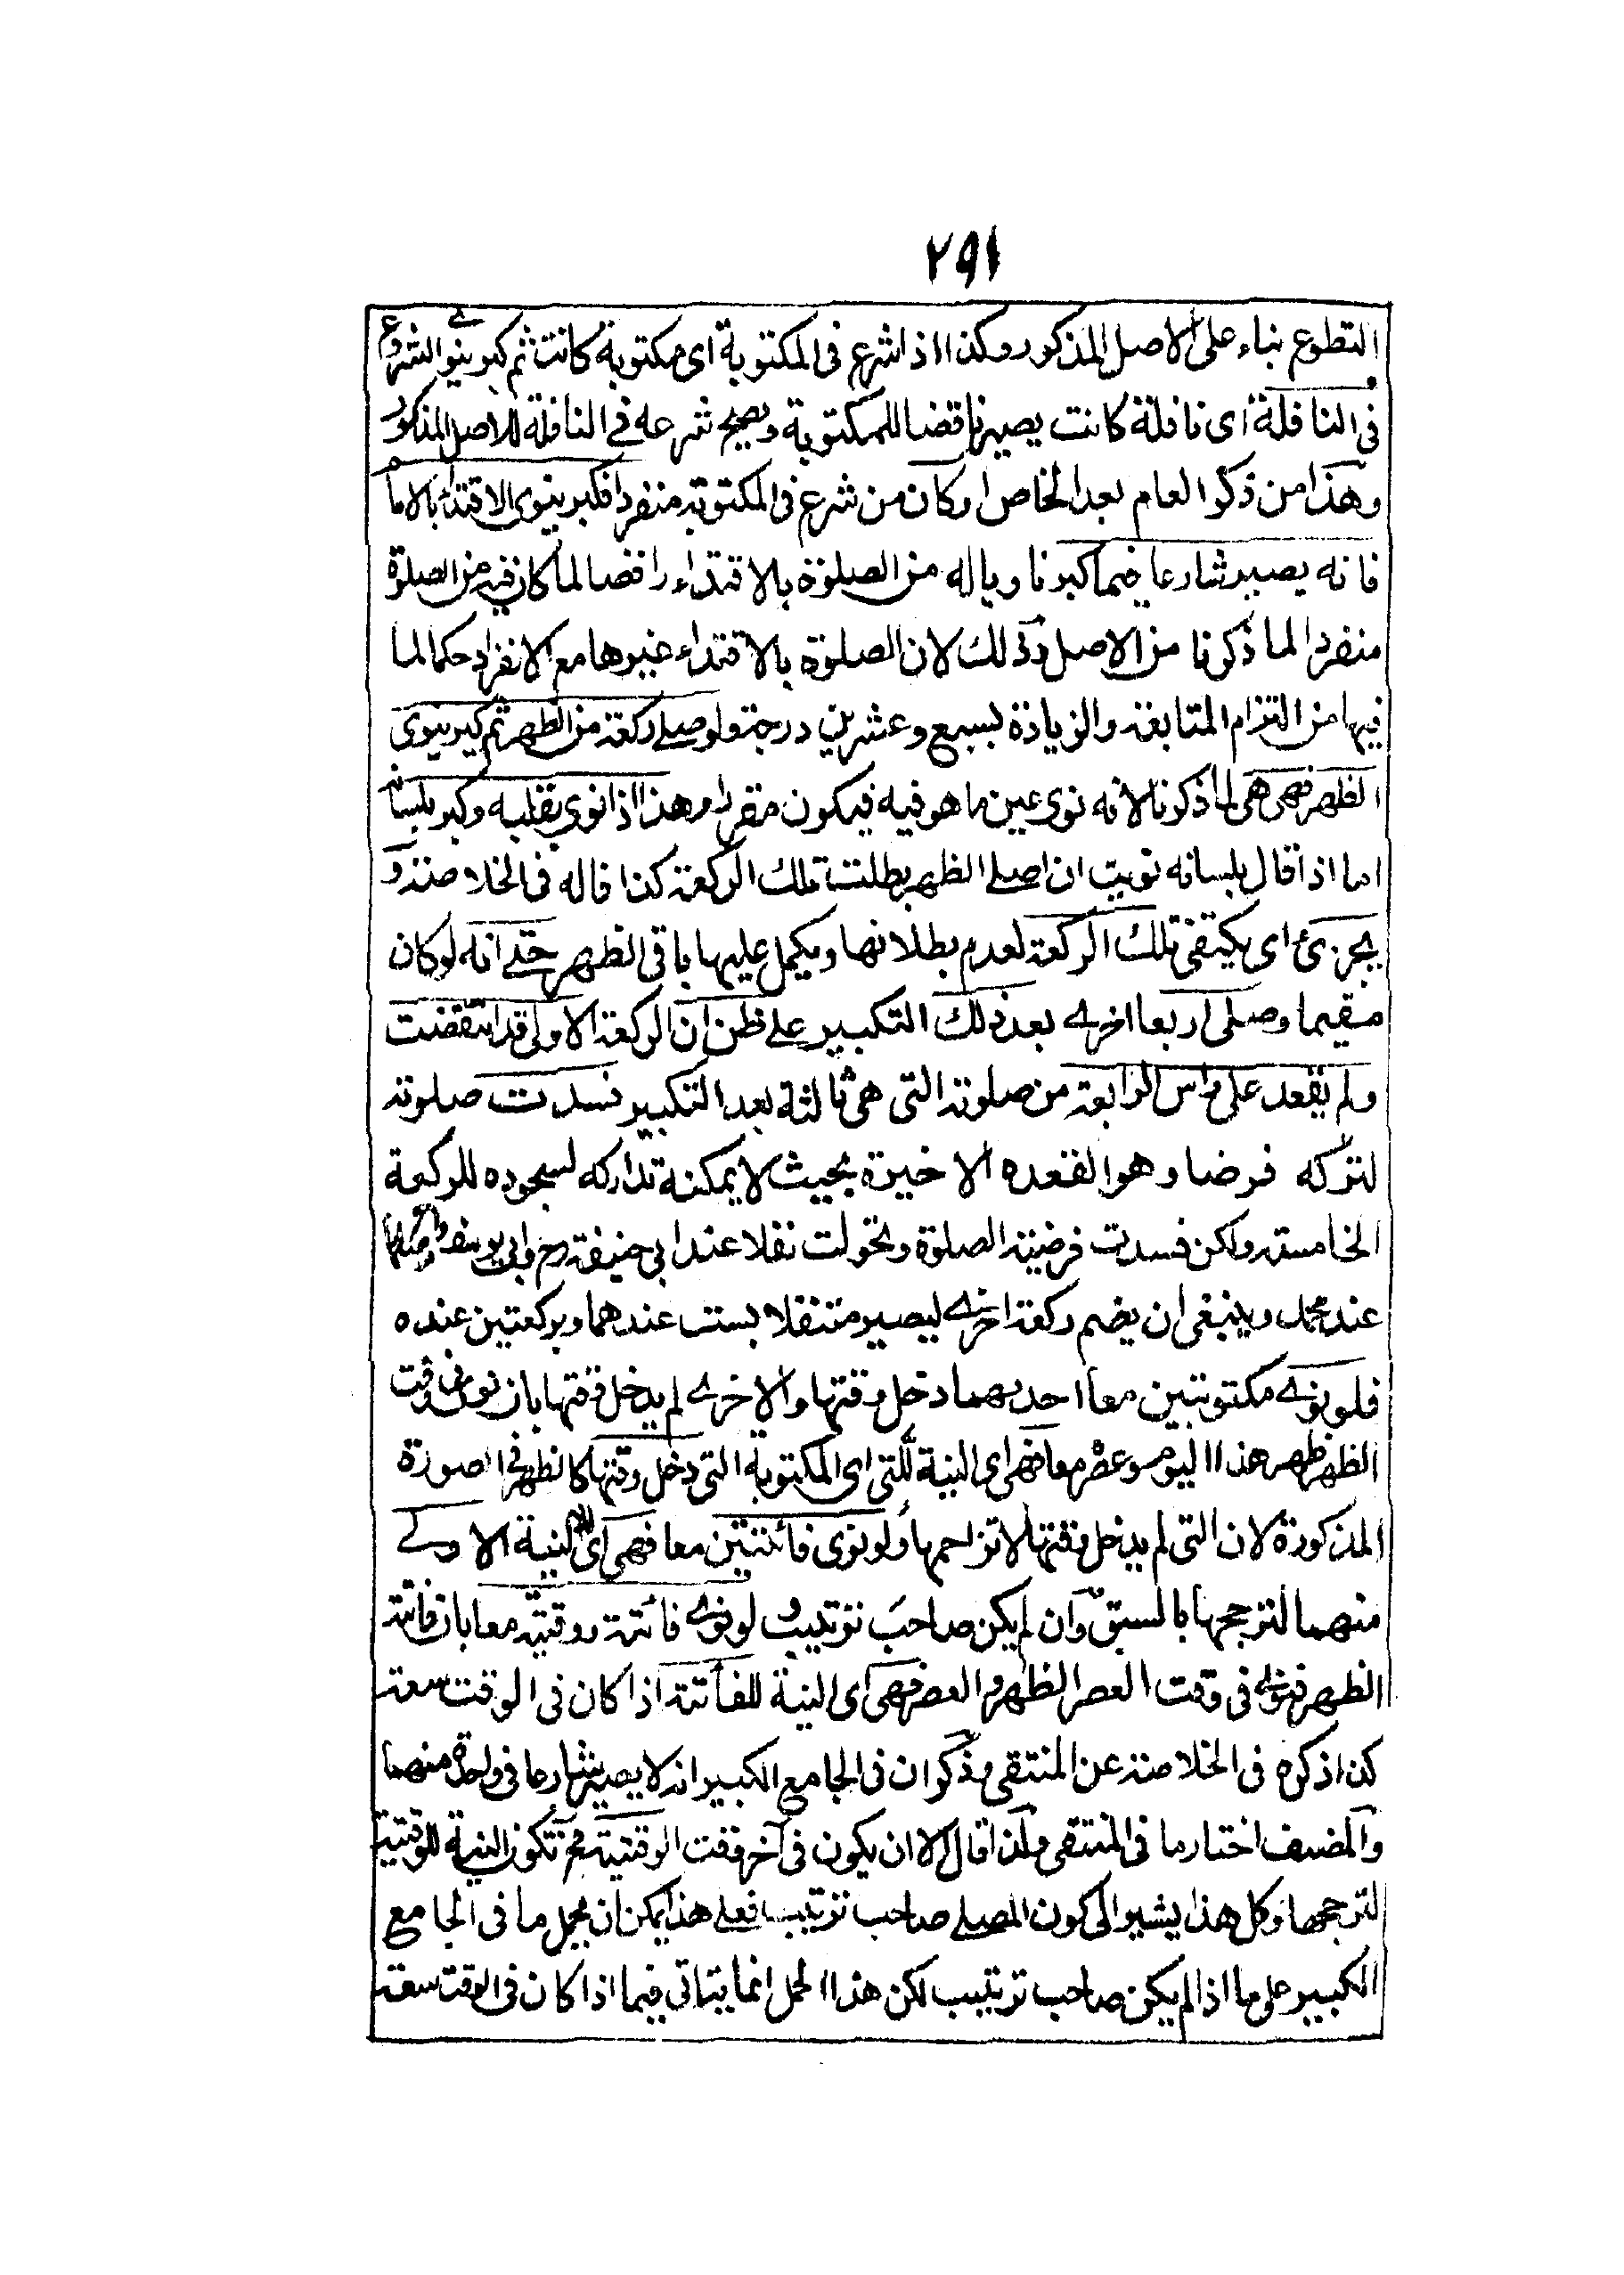 ٢٩١
التطوع بناء على الاصل المذكور وكذا اذا شرع فى المكتوبة اى مكتوبة كانت ثم كبر ينوى الشروع
فى النافلة اى نافلة كانت يصير ناقضا للمكتوبة ويصح شرعه فى النافلة للاصل المذكور
وهذا من ذكر العام بعد الخاص او كان من شرع فى المكتوبة منفردا فكبر ينوى الاقتداء بالامام
فانه يصير شارعا فيما كبر ناويا له من الصلوة بالاقتداء رافضا لما كان فيه من الصلوة
منفردا لما ذكرنا من الاصل وذلك لان الصلوة بالاقتداء غيرها مع الانفراد حكما لما
فيها من التزام المتابعة والزيادة بسبع وعشرين درجة ولو صلى ركعة من الظهر ثم كبر ينوى
الظهر فهى هى لما ذكرنا لانه نوى عين ما هو فيه فيكون مقررا وهذا اذا نوى بقلبه وكبر بلسانه
اما اذا قال بلسانه نويت ان اصلى الظهر بطلت تلك الركعة كذا قاله فى الخلاصة و
يجزئ اى يكتفى تلك الركعة لعدم بطلانها ويكمل عليها باقى الظهر حتى انه لو كان
مقيما وصلى اربعا اخرى بعد ذلك التكبير على ظن ان الركعة الاولى قد انتقضت
ولم يقعد على راس الرابعة من صلوته التى هى ثالثة بعد التكبير فسدت صلوته
لتركه فرضا وهو القعده الاخيرة بحيث لا يمكنه تداركه لسجوده للركعة
الخامسة ولكن فسدت فرضية الصلوة وتحولت نفلا عند ابى حنيفة رح وابى يوسف
عند محمد وينبغى ان يضم ركعة اخرى ليصير متنفلا بست عندهما وبركعتين عنده
فلو نوى مكتوبتين معا احديهما دخل وقتها والاخرى لم يدخل وقتها بان نوى فى وقت
الظهر ظهر هذا اليوم وعصره معا فهى اى النية للتى اى المكتوبة التى دخل وقتها كالظهر فى الصورة
المذكورة لان التى لم يدخل وقتها لا تزاحمها ولو نوى فائتتين معا فهى اى النية الاولى
منهما لترجحها بالسبق وان لم يكن صاحب ترتيب ولو نوى فائتة ووقتية معا بان فاتته
الظهر فنوى فى وقت العصر الظهر والعصر فهى اى النية للفائتة اذا كان فى الوقت سعة
كذا ذكره فى الخلاصة عن المنتقى وذكر ان فى الجامع الكبير انه لا يصير شارعا فى واحدة منهما
والمصنف اختار ما فى المنتقى ولذا قال الا ان يكون فى آخر وقت الوقتية فح تكون النية للوقتية
لترجحها وكل هذا يشير الى كون المصلى صاحب ترتيب فعلى هذا يمكن ان يحمل ما فى الجامع
الكبير على ما اذا لم يكن صاحب ترتيب لكن هذا الحمل انما يتاتى فيما اذا كان فى الوقت سعة